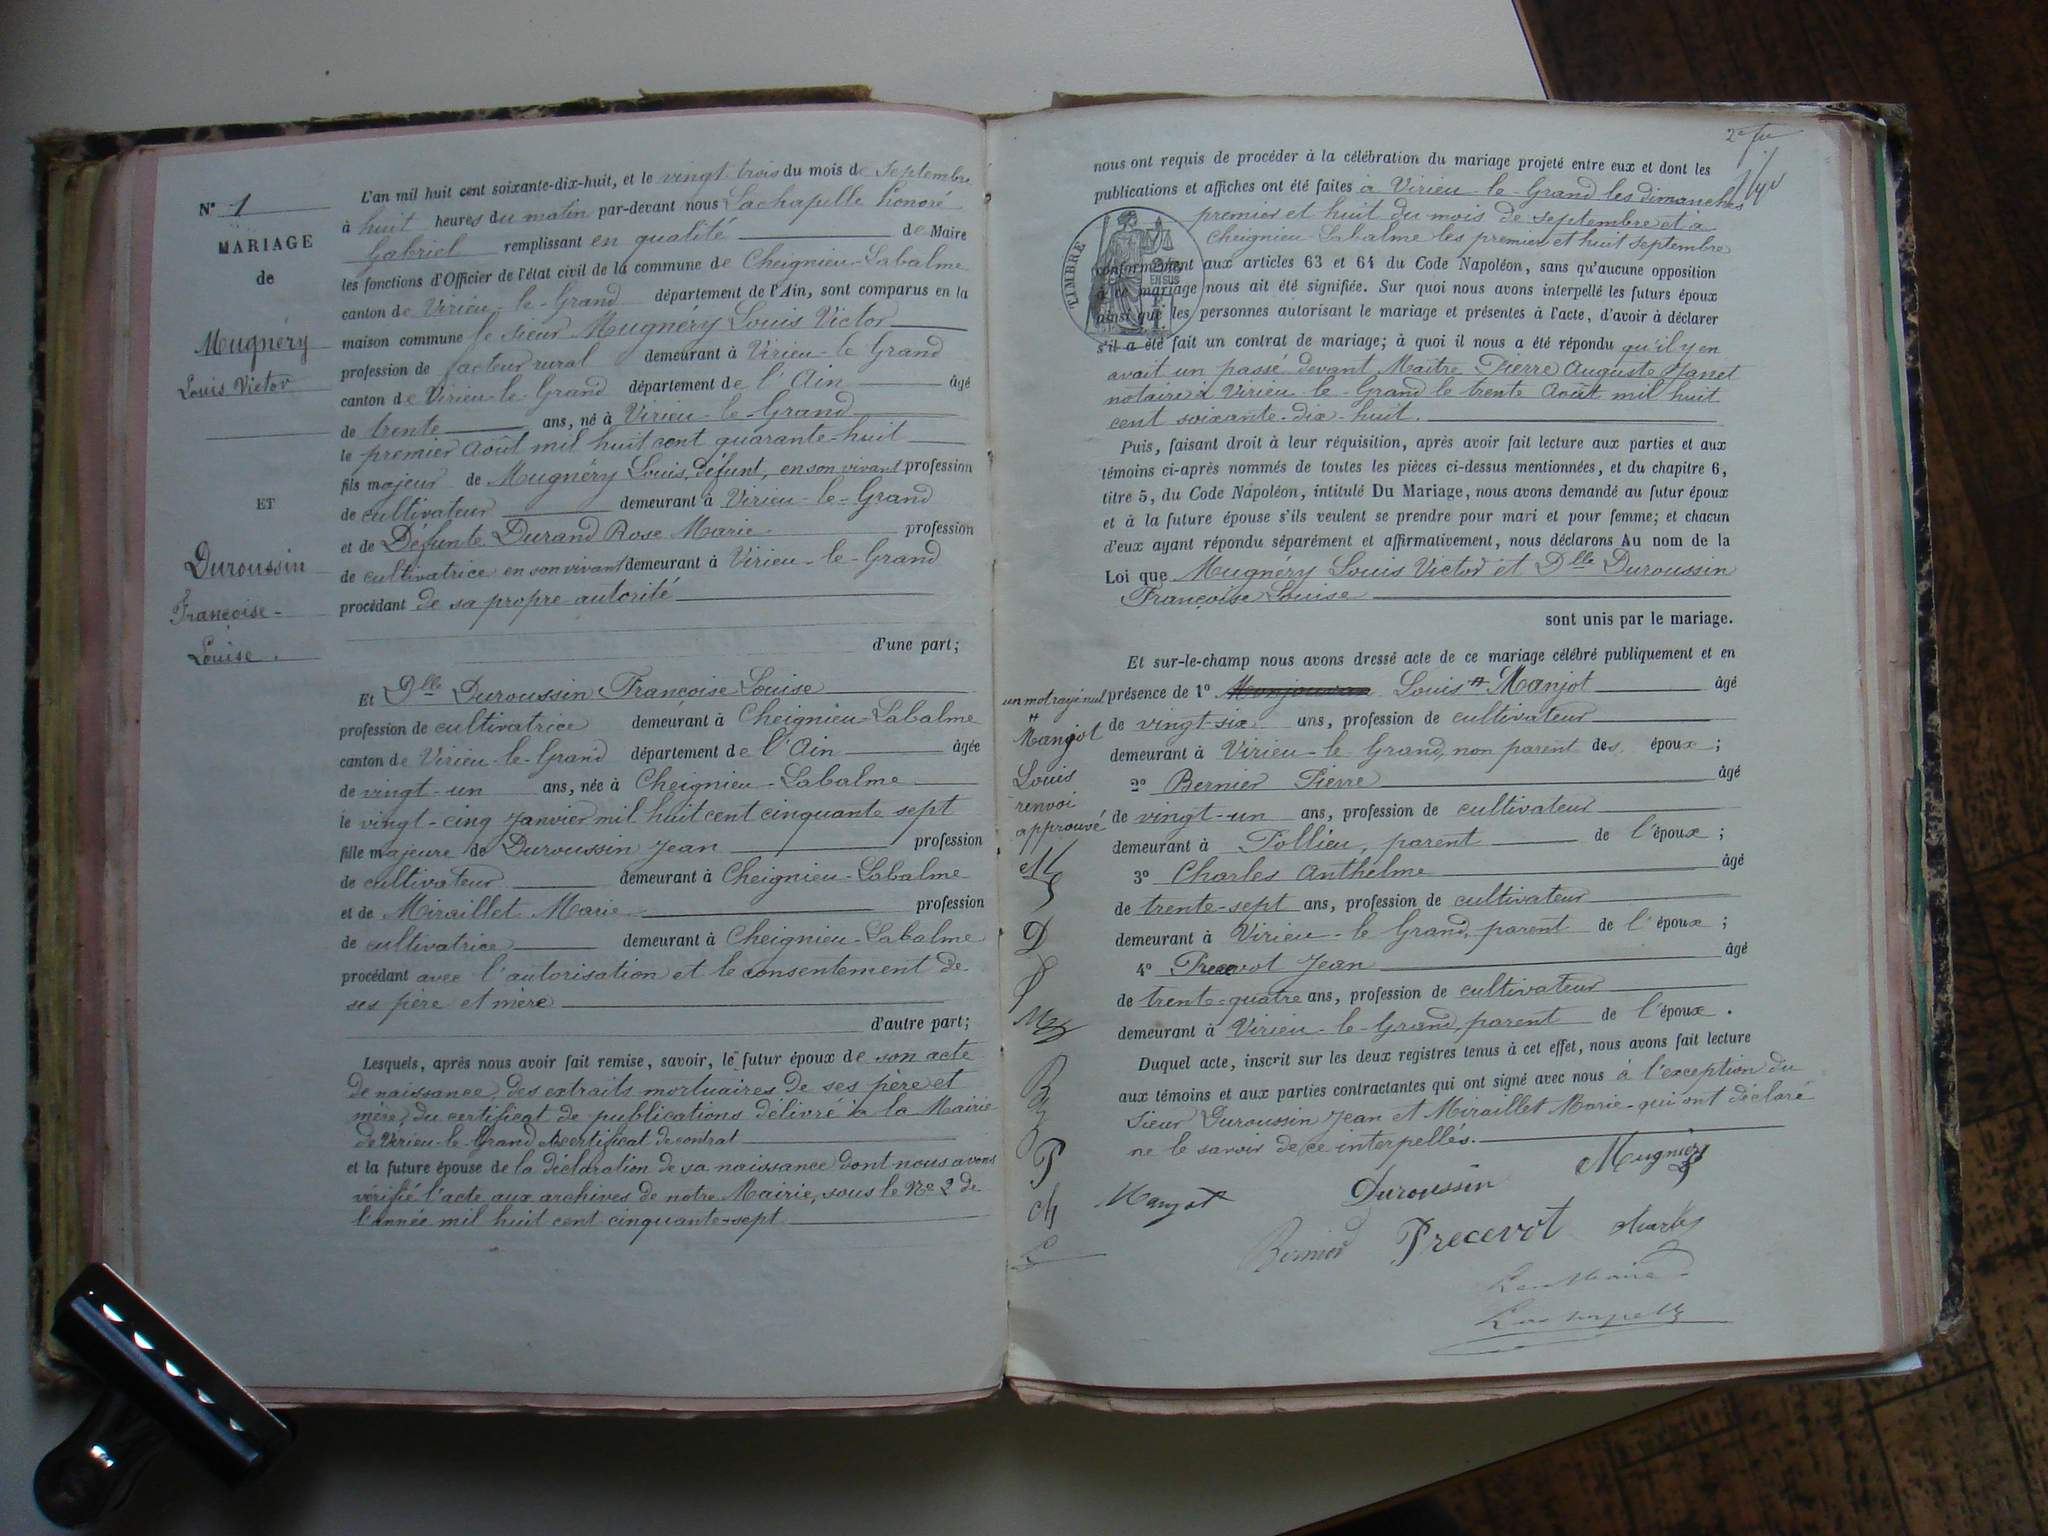 N° 1
MARIAGE
de
Mugnéry
Louis Victor
ET
Duroussin
Françoise-
Louise.
L'an mil huit cent soixante-dix-huit, et le vingt trois du mois de Septembre
à huit heures du matin par-devant nous Lachapelle honoré
Gabriel remplissant en qualité de Maire
les fonctions d'Officier de l'état civil de la commune de Cheignieu-Labalme
canton de Virieu-le-Grand département de l'Ain, sont comparus en la
maison commune le sieur Mugnéry Louis Victor
profession de facteur rural demeurant à Virieu-le Grand
canton de Virieu-le-Grand département de l'Ain âgé
de trente ans, né à Virieu-le-Grand
le premier Août mil huit cent quarante-huit
fils majeur de Mugnéry Louis, défunt, en son vivant profession
de cultivateur demeurant à Virieu-le-Grand
et de Défunte Durand Rose Marie profession
de cultivatrice en son vivant demeurant à Virieu-le-Grand
procédant de sa propre autorité
d'une part;
Et Dlle Duroussin Françoise Louise
profession de cultivatrice demeurant à Cheignieu-Labalme
canton de Virieu-le-Grand département de l'Ain âgée
de vingt-un ans, née à Cheignieu-Labalme
le vingt-cinq Janvier mil huit cent cinquante sept
fille majeure de Duroussin Jean profession
de cultivateur demeurant à Cheignieu-Labalme
et de Miraillet Marie profession
de cultivatrice demeurant à Cheignieu-Labalme
procédant avec l'autorisation et le consentement de
ses père et mère
d'autre part;
Lesquels, après nous avoir fait remise, savoir, le futur époux de son acte
de naissance, des extraits mortuaires de ses père et
mère, du certificat de publications délivré à la Mairie
de Virieu-le-Grand et certificat de contrat
et la future épouse de la déclaration de sa naissance dont nous avons
vérifié l'acte aux archives de notre Mairie, sous le No 2 de
l'année mil huit cent cinquante-sept.
nous ont requis de procéder à la célébration du mariage projeté entre eux et dont les
publications et affiches ont été faites à Virieu-le-Grand les dimanches
premier et huit du mois de septembre et à
Cheignieu Labalme les premier et huit septembre
TIMBRE
EN SUS
conformément aux articles 63 et 64 du Code Napoléon, sans qu'aucune opposition
à ce mariage nous ait été signifiée. Sur quoi nous avons interpellé les futurs époux
ainsi que les personnes autorisant le mariage et présentes à l'acte, d'avoir à déclarer
s'il a été fait un contrat de mariage; à quoi il nous a été répondu qu'il y en
avait un passé devant Maître Pierre Auguste Janet
notaire à Virieu-le-Grand le trente Août mil huit
cent soixante-dix-huit.
Puis, faisant droit à leur réquisition, après avoir fait lecture aux parties et aux
témoins ci-après nommés de toutes les pièces ci-dessus mentionnées, et du chapitre 6,
titre 5, du Code Napoléon, intitulé Du Mariage, nous avons demandé au futur époux
et à la future épouse s'ils veulent se prendre pour mari et pour femme; et chacun
d'eux ayant répondu séparément et affirmativement, nous déclarons Au nom de la
Loi que Mugnéry Louis Victor et Dlle Duroussin
Françoise Louise
sont unis par le mariage.
Et sur-le-champ nous avons dressé acte de ce mariage célébré publiquement et en
présence de 1° Louis # Manjot âgé
de vingt-six ans, profession de cultivateur
demeurant à Virieu-le-Grand, non parent des époux;
2° Bernier Pierre âgé
de vingt-un ans, profession de cultivateur
demeurant à Pollieu, parent de l'époux;
3° Charles Anthelme âgé
de trente-sept ans, profession de cultivateur
demeurant à Virieu-le Grand, parent de l'époux;
4° Precevot Jean âgé
de trente-quatre ans, profession de cultivateur
demeurant à Virieu-le-Grand, parent de l'époux.
Duquel acte, inscrit sur les deux registres tenus à cet effet, nous avons fait lecture
aux témoins et aux parties contractantes qui ont signé avec nous à l'exception du
Sieur Duroussin Jean et Miraillet Marie qui ont déclaré
ne le savoir de ce interpellés.
un mot rayé nul
#
Manjot
Louis
renvoi
approuvé
D
B
P
ch
Manjot
Duroussin
Mugnéry
Bernier
Precevot
charles
Le Maire
Lachapelle